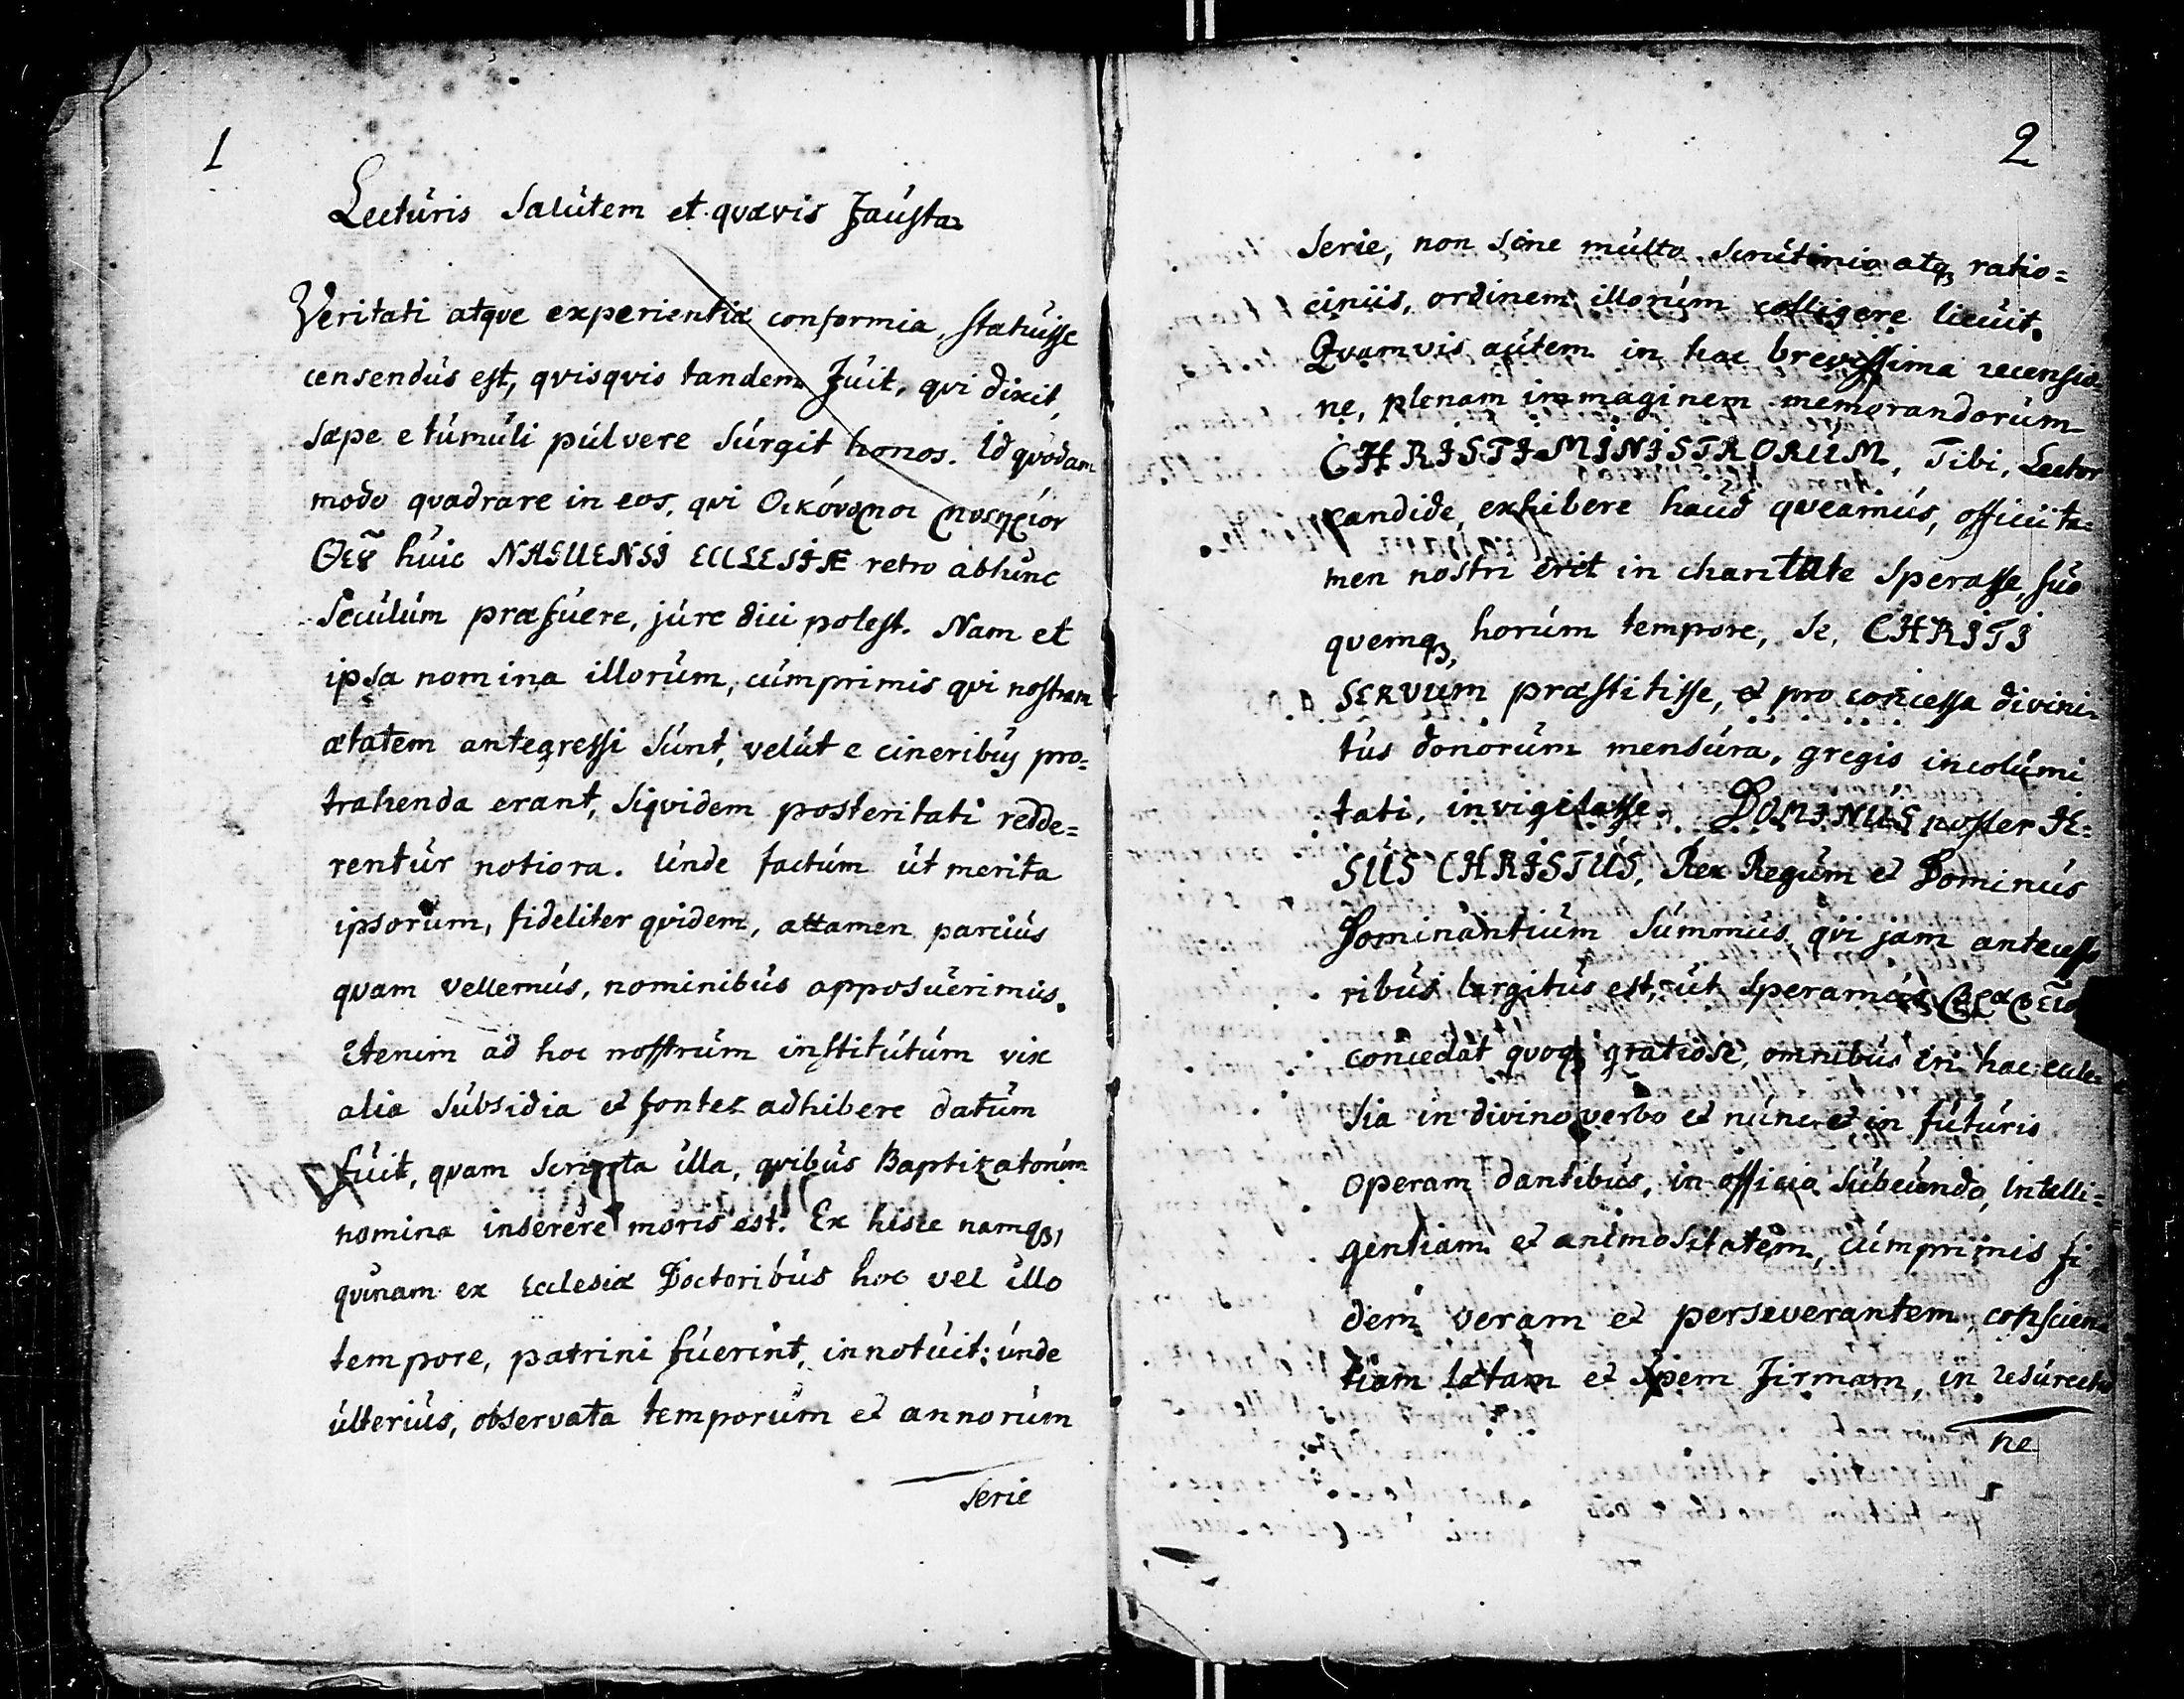 1
Lecturis Salutem et qvævis Fausta.
Veritati atqve experientiæ conformia, statuisse
censendus est, qvisqvis tandem fuit, qvi dixit,
sæpe e tumuli pulvere surgit honos. Id qvodam
modo qvadrare in eos, qvi Οικόνομοι μυστηρίων
Θεȣ͂ huic NAGUENSI ECCLESIÆ retro abhunc
Seculum præfuere, jure dici potest. Nam et
ipsa nomina illorum, cumprimis qvi nostram
ætatem antegressi sunt, velut e cineribus pro=
trahenda erant, siqvidem posteritati redde=
rentur notiora. Unde factum ut merita
ipsorum, fideliter qvidem, attamen parcius
qvam vellemus, nominibus apposuerimus.
Etenim ad hoc nostrum institutum vix
alia subsidia et fontes adhibere datum
fuit, qvam scripta illa, qvibus Baptizatorum
nomina inserere moris est. Ex hisce namqꝫ,
qvinam ex Ecclesiæ Doctoribus hoc vel illo
tempore, patrini fuerint, innotuit: unde
ulterius, observata temporum et annorum
serie
2
Serie, non sine multo, scrutinio atqꝫ ratio=
ciniis, ordinem illorum colligere licuit.
Qvamvis autem in hac brevissima recensio=
ne, plenam immaginem memorandorum
CHRISTI MINISTRORUM, Tibi, Lector
candide, exhibere haud qveamus, officii ta=
men nostri erit in charitate sperasse, suo
qvemqꝫ, horum tempore, se, CHRISTI
SERVUM præstitisse, et pro concessa divini=
tus donorum mensura, gregis incolumi
tati, invigilasse. DOMINUS noster JE=
SUS CHRISTUS, Rex Regum et Dominus
Dominantium Summus, qvi jam antecesso
ribus largitus est, ut speramus,
concedat qvoqꝫ gratiose, omnibus in hac eccle=
sia in divino verbo et nunc et in futuris
operam dantibus, in officio subeundo, intelli=
gentiam et animositatem, cumprimis fi
dem veram et perseverantem, conscien=
tiam lætam et spem firmam, in resurectio
ne